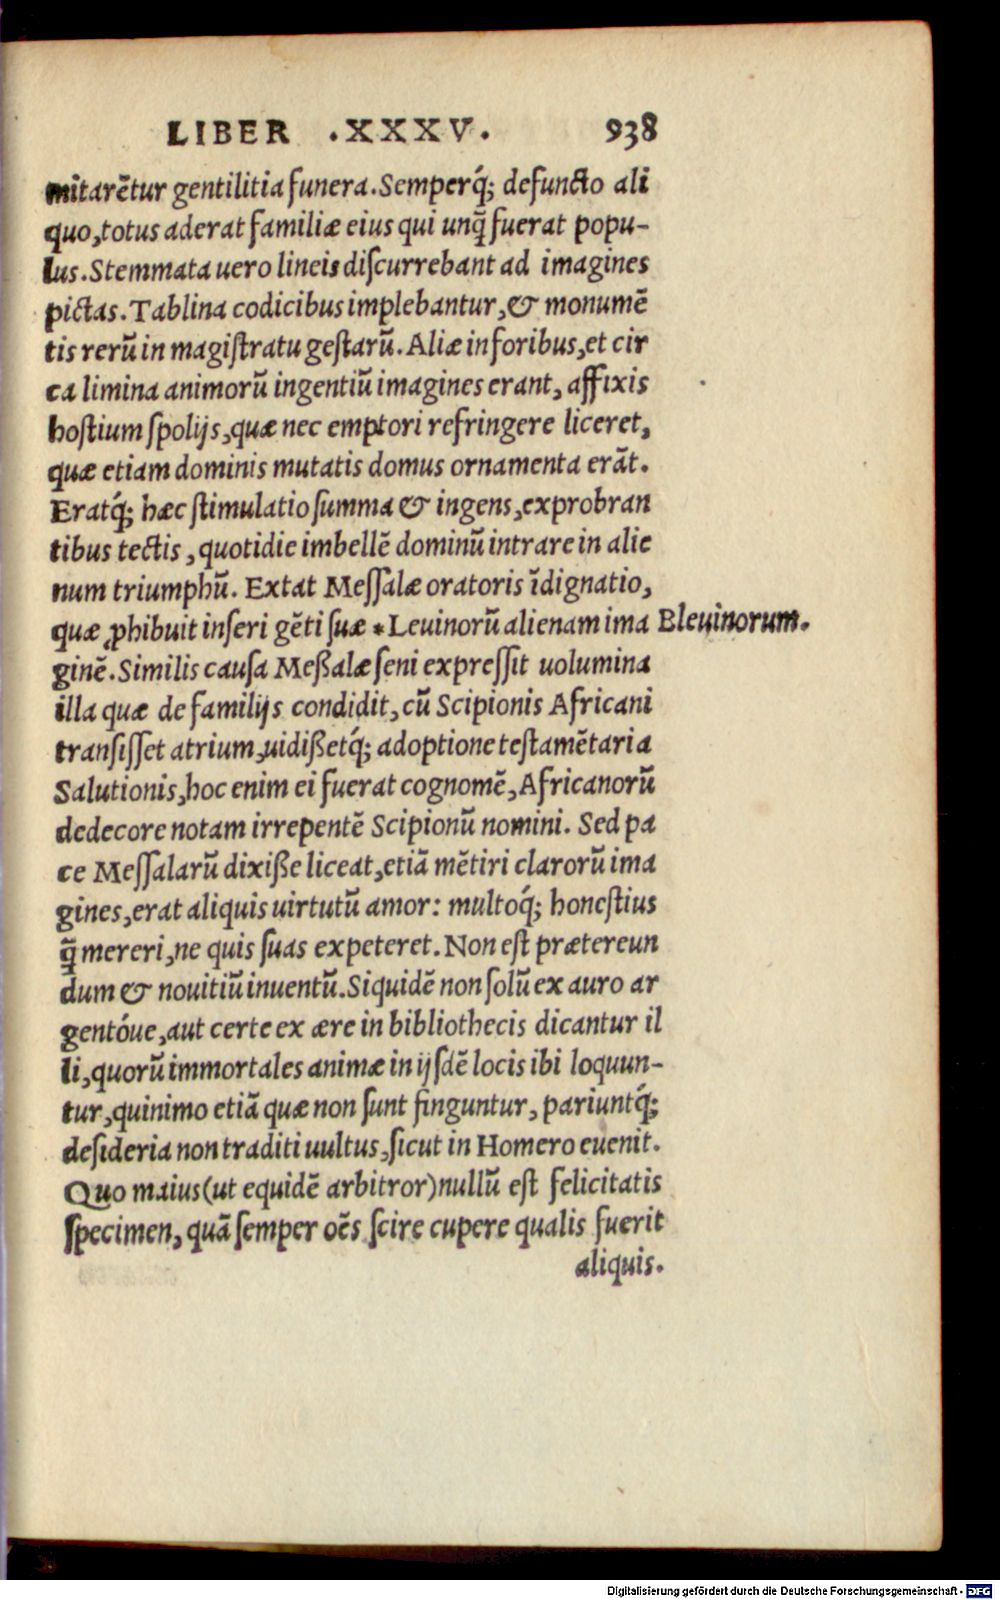 LIBER .XXXV. 938
mitarētur gentilitia funera. Semperq́; defuncto ali
quo, totus aderat familiæ eius qui unq̃ fuerat popu-
lus. Stemmata uero lineis diſcurrebant ad imagines
pictas. Tablina codicibus implebantur, & monumē
tis rerū in magiſtratu geſtarū. Aliæ in foribus, et cir
ca limina animorū ingentiū imagines erant, affixis
hoſtium ſpolijs, quæ nec emptori refringere liceret,
quæ etiam dominis mutatis domus ornamenta erāt.
Eratq́; hæc ſtimulatio ſumma & ingens, exprobran
tibus tectis, quotidie imbellē dominū intrare in alie
num triumphū. Extat Meſſalæ oratoris īdignatio,
quæ ꝓhibuit inſeri gēti ſuæ *Leuinorū alienam ima Eleuinorum.
ginē. Similis cauſa Meßalæ ſeni expreſſit uolumina
illa quæ de familijs condidit, cū Scipionis Africani
tranſiſſet atrium, uidißetq́; adoptione teſtamētaria
Salutionis, hoc enim ei fuerat cognomē, Africanorū
dedecore notam irrepentē Scipionū nomini. Sed pa
ce Meſſalarū dixiße liceat, etiā mētiri clarorū ima
gines, erat aliquis uirtutū amor: multoq́; honeſtius
q̃ mereri, ne quis ſuas expeteret. Non eſt prætereun
dum & nouitiū inuentū. Siquidē non ſolū ex auro ar
gentóue, aut certe ex ære in bibliothecis dicantur il
li, quorū immortales animæ in ijſdē locis ibi loquun-
tur, quinimo etiā quæ non ſunt finguntur, pariuntq́;
deſideria non traditi uultus, ſicut in Homero euenit.
Quo maius (ut equidē arbitror) nullū eſt felicitatis
ſpecimen, quā ſemper oēs ſcire cupere qualis fuerit
aliquis.
Digitalisierung gefördert durch die Deutsche Forschungsgemeinschaft - DFG